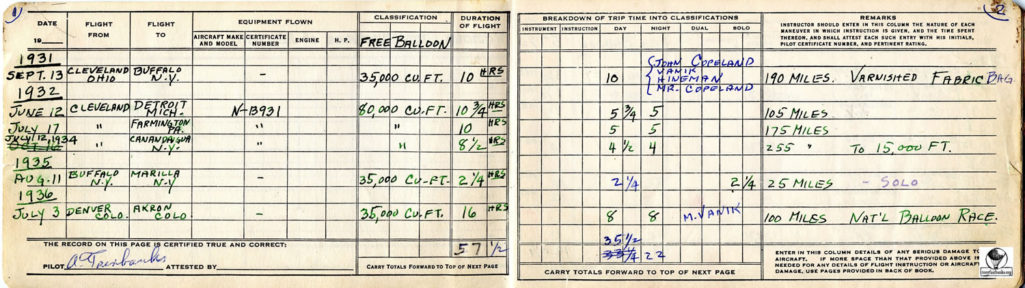 1
DATE
19
FLIGHT FROM
FLIGHT TO
EQUIPMENT FLOWN
AIRCRAFT MAKE AND MODEL
CERTIFICATE NUMBER
ENGINE
H. P.
CLASSIFICATION
FREE BALLOON
DURATION OF FLIGHT
1931
SEPT. 13 CLEVELAND OHIO BUFFALO N.Y. – 35,000 CU.FT. 10 HRS
1932
JUNE 12 CLEVELAND DETROIT MICH. N-13931 80,000 CU-FT. 10 3/4 HRS
JULY 17 " FARMINGTON PA. " " 10 HRS
JULY 12, 1934 " CANANDAIGUA N.Y. " " 8 1/2 HRS
1935
AUG. 11 BUFFALO N.Y. MARILLA N.Y – 35,000 CU-FT. 2 1/4 HRS
1936
JULY 3 DENVER COLO. AKRON COLO. – 35,000 CU.FT. 16 HRS
57 1/2
THE RECORD ON THIS PAGE IS CERTIFIED TRUE AND CORRECT:
PILOT A. Fairbanks ATTESTED BY
CARRY TOTALS FORWARD TO TOP OF NEXT PAGE
BREAKDOWN OF TRIP TIME INTO CLASSIFICATIONS
INSTRUMENT
INSTRUCTION
DAY
NIGHT
DUAL
SOLO
REMARKS
INSTRUCTOR SHOULD ENTER IN THIS COLUMN THE NATURE OF EACH
MANEUVER IN WHICH INSTRUCTION IS GIVEN, AND THE TIME SPENT
THEREON, AND SHALL ATTEST EACH SUCH ENTRY WITH HIS INITIALS,
PILOT CERTIFICATE NUMBER, AND PERTINENT RATING.
JOHN COPELAND
VANIK
HINEMAN
MR. COPELAND
10 190 MILES. VARNISHED FABRIC BAG
5 3/4 5 105 MILES
5 5 175 MILES
4 1/2 4 255 " TO 15,000 FT.
2 1/4 2 1/4 25 MILES – SOLO
8 8 M. VANIK 100 MILES NAT'L BALLOON RACE.
35 1/2
22
CARRY TOTALS FORWARD TO TOP OF NEXT PAGE
ENTER IN THIS COLUMN DETAILS OF ANY SERIOUS DAMAGE TO
AIRCRAFT. IF MORE SPACE THAN THAT PROVIDED ABOVE IS
NEEDED FOR ANY DETAILS OF FLIGHT INSTRUCTION OR AIRCRAFT
DAMAGE, USE PAGES PROVIDED IN BACK OF BOOK.